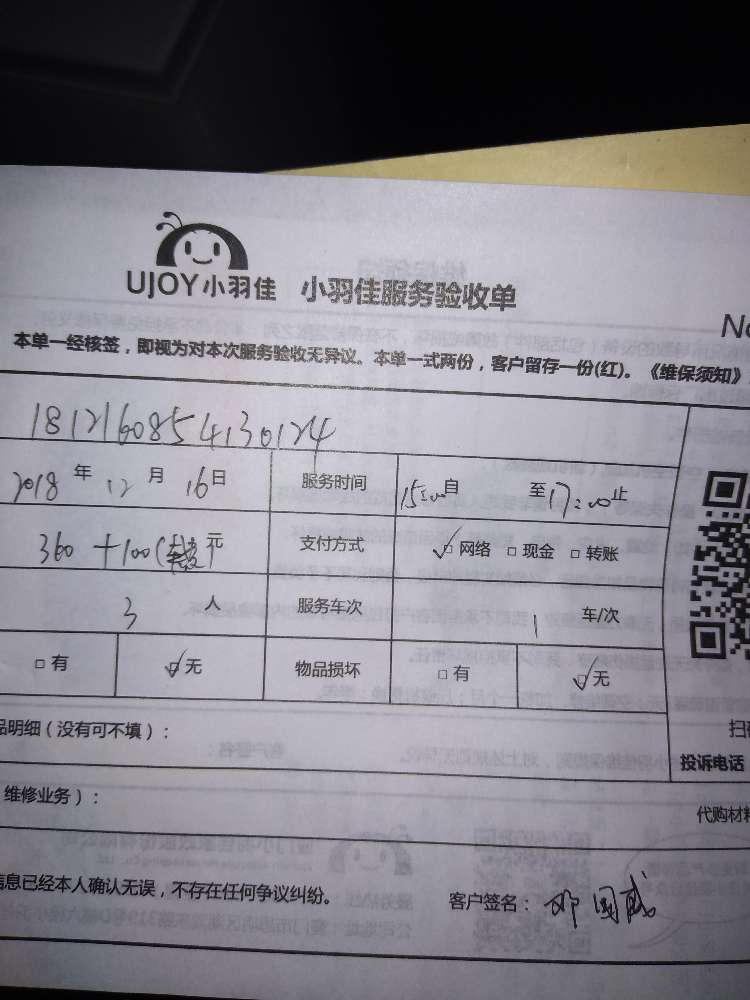 UJOY小羽佳 小羽佳服务验收单
No
本单一经核签，即视为对本次服务验收无异议。本单一式两份，客户留存一份(红)。《维保须知》
1812160854130124
2018年12月16日 服务时间 15:00自 至17:00止
360+100( )元 支付方式 ☑网络 □现金 □转账
3人 服务车次 1车/次
□有 ☑无 物品损坏 □有 ☑无
品明细（没有可不填）：
扫
投诉电话
维修业务）：
代购材料
信息已经本人确认无误，不存在任何争议纠纷。 客户签名：邓国威